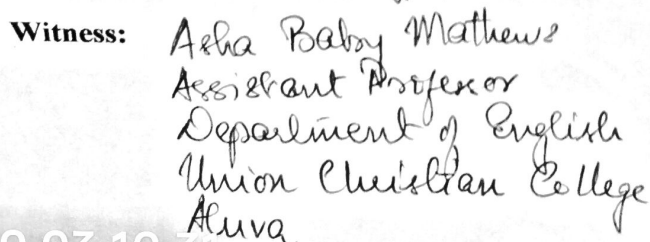 Witness: Asha Baby Mathews
Assistant Professor
Department of English
Union Christian College
Aluva